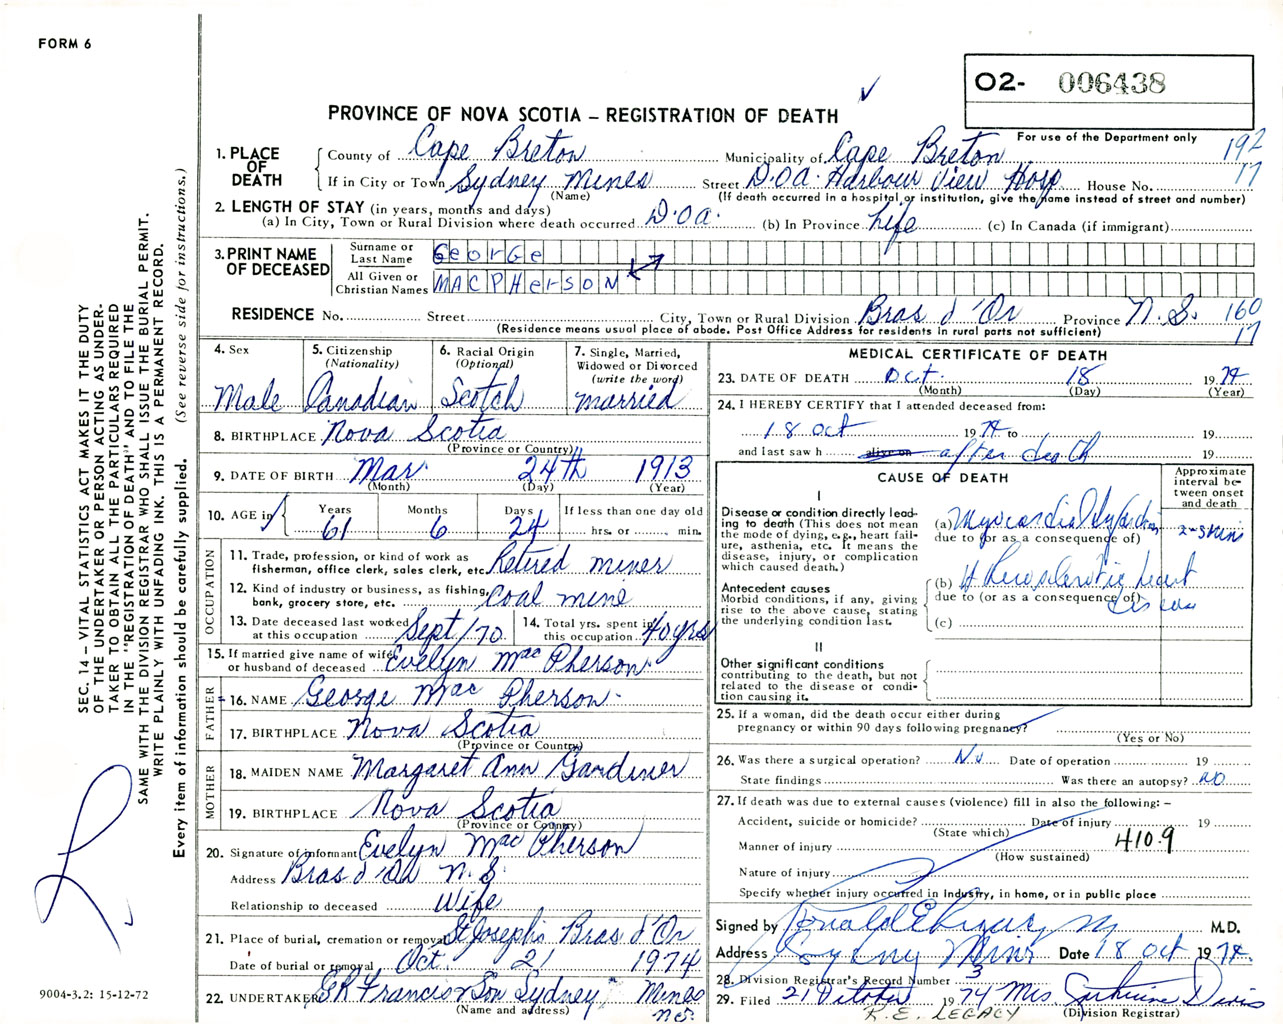 FORM 6
O2- 006438
PROVINCE OF NOVA SCOTIA – REGISTRATION OF DEATH
For use of the Department only
192
17
1. PLACE OF DEATH
County of Cape Breton Municipality of Cape Breton
If in City or Town Sydney Mines Street D.O.A. Harbour View Hosp House No.
(Name) (If death occurred in a hospital or institution, give the name instead of street and number)
2. LENGTH OF STAY (in years, months and days)
(a) In City, Town or Rural Division where death occurred D.O.A. (b) In Province Life (c) In Canada (if immigrant)
3. PRINT NAME OF DECEASED
Surname or Last Name George
All Given or Christian Names MACPHerSON
RESIDENCE No. Street City, Town or Rural Division Bras d'Or Province N.S. 160
17
(Residence means usual place of abode. Post Office Address for residents in rural parts not sufficient)
4. Sex Male
5. Citizenship (Nationality) Canadian
6. Racial Origin (Optional) Scotch
7. Single, Married, Widowed or Divorced (write the word) married
8. BIRTHPLACE Nova Scotia
(Province or Country)
9. DATE OF BIRTH Mar. 24th 1913
(Month) (Day) (Year)
10. AGE in Years 61 Months 6 Days 24 If less than one day old hrs. or min.
OCCUPATION
11. Trade, profession, or kind of work as fisherman, office clerk, sales clerk, etc. Retired miner
12. Kind of industry or business, as fishing, bank, grocery store, etc. Coal mine
13. Date deceased last worked at this occupation Sept/70
14. Total yrs. spent in this occupation 40 yrs
15. If married give name of wife or husband of deceased Evelyn MacPherson
FATHER
16. NAME George MacPherson
17. BIRTHPLACE Nova Scotia
(Province or Country)
MOTHER
18. MAIDEN NAME Margaret Ann Gardiner
19. BIRTHPLACE Nova Scotia
(Province or Country)
20. Signature of informant Evelyn MacPherson
Address Bras d'Or N.S.
Relationship to deceased Wife
21. Place of burial, cremation or removal St Joseph's Bras d'Or
Date of burial or removal Oct. 21 1974
22. UNDERTAKER Francis & Son Sydney Mines
N.S.
(Name and address)
MEDICAL CERTIFICATE OF DEATH
23. DATE OF DEATH Oct. 18 1974
(Month) (Day) (Year)
24. I HEREBY CERTIFY that I attended deceased from:
18 Oct 1974 to 19
and last saw h alive on after death 19
CAUSE OF DEATH
Approximate interval between onset and death
I
Disease or condition directly leading to death (This does not mean the mode of dying, e.g., heart failure, asthenia, etc. It means the disease, injury, or complication which caused death.)
(a) Myocardial Infarction
due to (or as a consequence of)
Antecedent causes
Morbid conditions, if any, giving rise to the above cause, stating the underlying condition last.
(b) Atherosclerotic heart disease
due to (or as a consequence of)
(c)
II
Other significant conditions contributing to the death, but not related to the disease or condition causing it.
25. If a woman, did the death occur either during pregnancy or within 90 days following pregnancy?
(Yes or No)
26. Was there a surgical operation? No Date of operation 19
State findings Was there an autopsy? NO
27. If death was due to external causes (violence) fill in also the following: –
Accident, suicide or homicide? Date of injury 19
(State which)
Manner of injury 410.9
(How sustained)
Nature of injury
Specify whether injury occurred in Industry, in home, or in public place
Signed by Ronald M.D.
Address Sydney Mines Date 18 Oct 1974
28. Division Registrar's Record Number 3
29. Filed 21 October 1974 Mrs. Davis
R.E. LEGACY (Division Registrar)
SEC. 14 – VITAL STATISTICS ACT MAKES IT THE DUTY
OF THE UNDERTAKER OR PERSON ACTING AS UNDER-
TAKER TO OBTAIN ALL THE PARTICULARS REQUIRED
IN THE "REGISTRATION OF DEATH" AND TO FILE THE
SAME WITH THE DIVISION REGISTRAR WHO SHALL ISSUE THE BURIAL PERMIT.
WRITE PLAINLY WITH UNFADING INK. THIS IS A PERMANENT RECORD.
Every item of information should be carefully supplied. (See reverse side for instructions.)
9004-3.2: 15-12-72